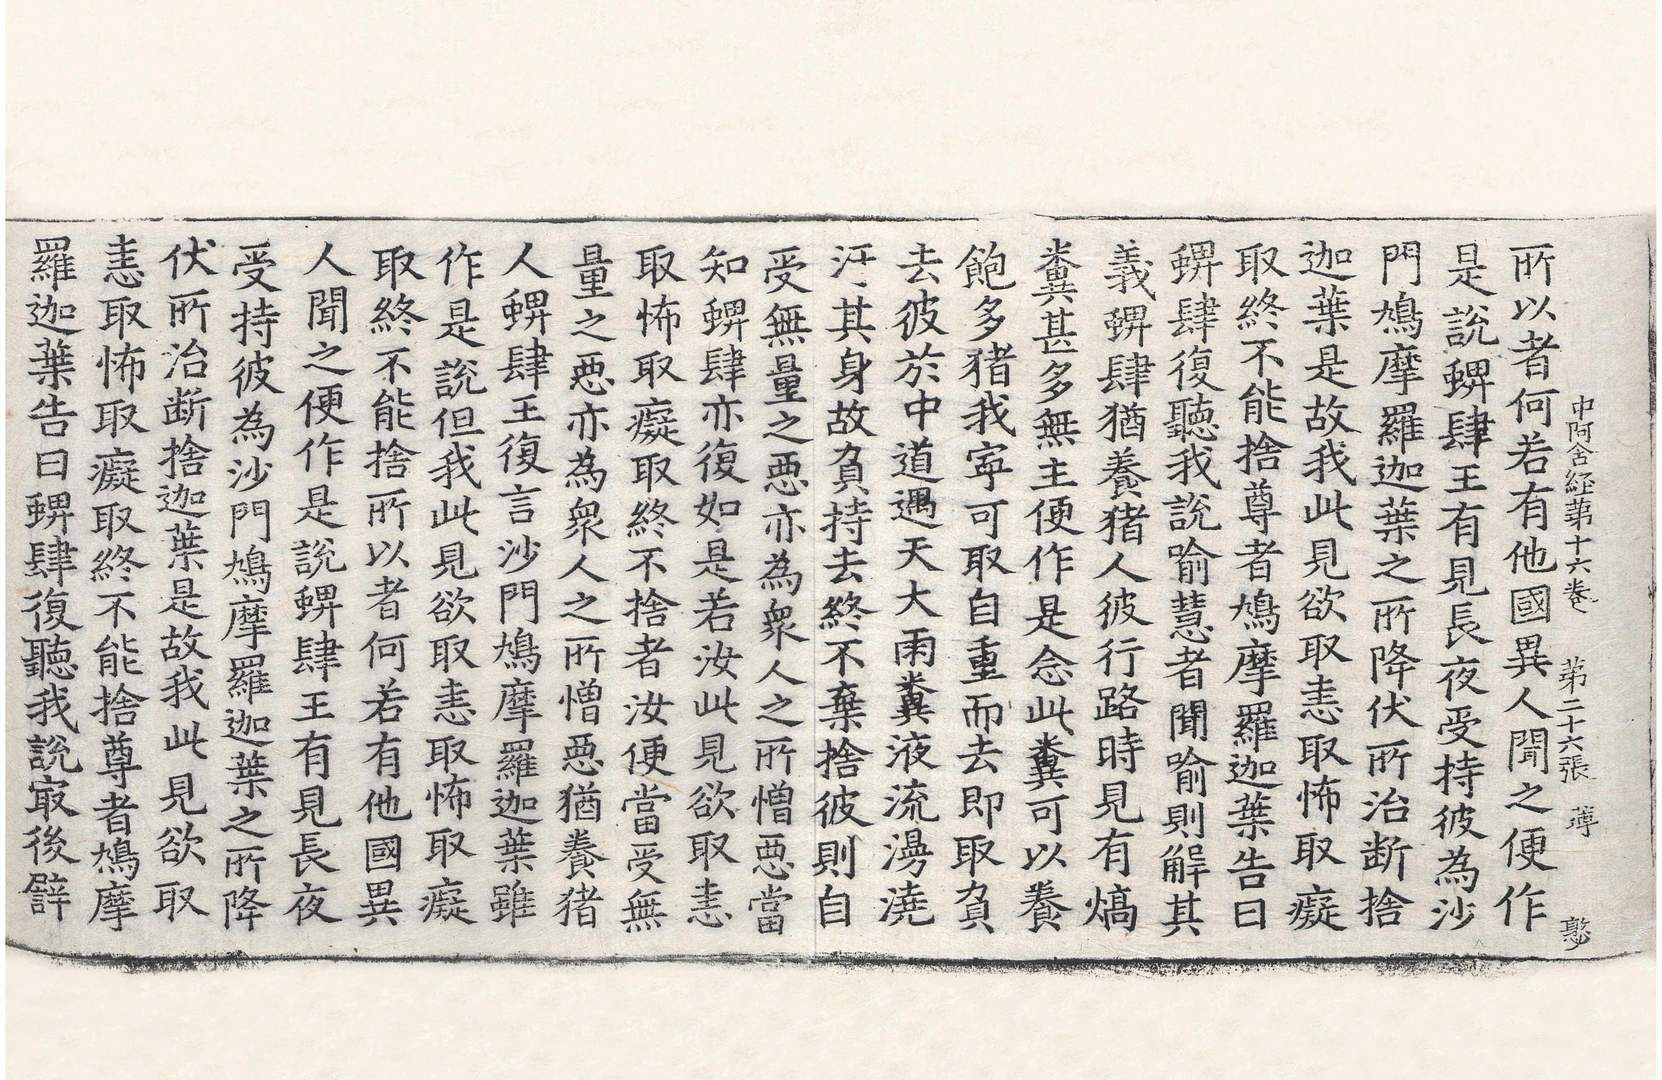 中阿含経苐十六卷 苐二十六張 薄 憝
所以者何若有他國異人聞之便作
是說蜱肆王有見長夜受持彼為沙
門鳩摩羅迦葉之所降伏所治断捨
迦葉是故我此見欲取恚取怖取癡
取終不能捨尊者鳩摩羅迦葉告曰
蜱肆復聽我說喻慧者聞喻則解其
義蜱肆猶養猪人彼行路時見有熇
糞甚多無主便作是念此糞可以養
飽多猪我寧可取自重而去即取負
去彼於中道遇天大雨糞液流漫澆
汙其身故負持去終不棄捨彼則自
受無量之惡亦為衆人之所憎惡當
知蜱肆亦復如是若汝此見欲取恚
取怖取癡取終不捨者汝便當受無
量之惡亦為衆人之所憎惡猶養猪
人蜱肆王復言沙門鳩摩羅迦葉雖
作是說但我此見欲取恚取怖取癡
取終不能捨所以者何若有他國異
人聞之便作是說蜱肆王有見長夜
受持彼為沙門鳩摩羅迦葉之所降
伏所治断捨迦葉是故我此見欲取
恚取怖取癡取終不能捨尊者鳩摩
羅迦葉告曰蜱肆復聽我說㝡後譬